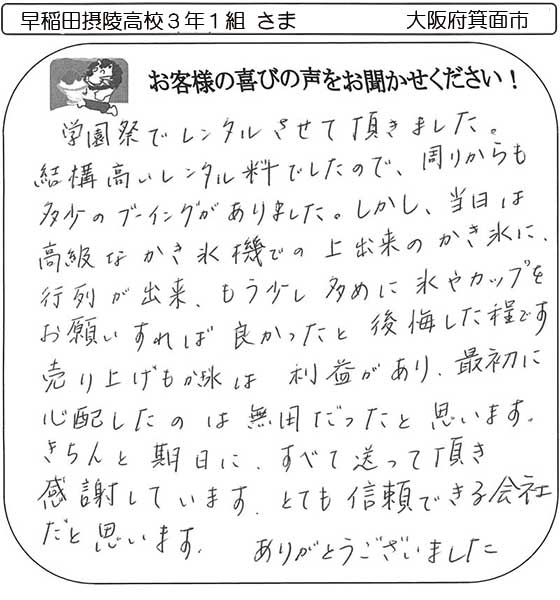 早稲田摂陵高校3年1組 さま 大阪府箕面市
お客様の喜びの声をお聞かせください!
学園祭でレンタルさせて頂きました。
結構高いレンタル料でしたので、周りからも
多少のブーイングがありました。しかし、当日は
高級なかき氷機での上出来のかき氷に、
行列が出来、もう少し多めに氷やカップを
お願いすれば良かったと後悔した程です
売り上げも は利益があり、最初に
心配したのは無用だったと思います。
きちんと期日に、すべて送って頂き
感謝しています。とても信頼できる会社
だと思います。 ありがとうございました